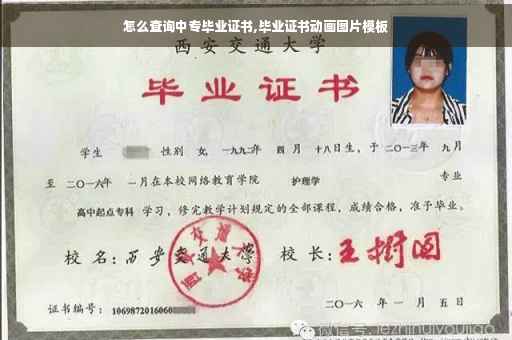 怎么查询中专毕业证书,毕业证书动画图片模板
西安交通大学
毕业证书
学生 性别 女, 一九九二年 四 月 十八日生, 于 二〇一三年 九月
至 二〇一六年 一月在本校网络教育学院 护理学 专业
高中起点专科 学习, 修完教学计划规定的全部课程, 成绩合格, 准予毕业。
校 名: 西安交通大学 校 长: 王树国
证书编号: 1069872016060
二〇一六 年 一 月 五 日
微信号: jiezhihuiyoujiao